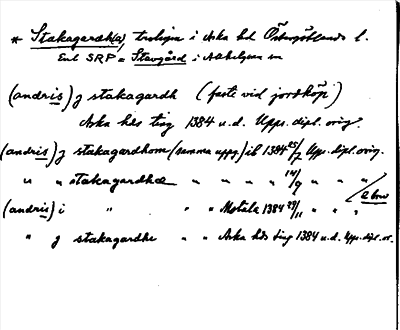 * Stakagardh(a), troligen i Aska hd Östergötlands l.
Enl SRP = Stavgård i Askelysen sn
(andris) j stakagardh (faste vid jordköp)
Aska hds ting 1384 u.d. Upps. dipl. orig.
(andris) j stakagardhom (samma uppg) ib 1384 25/7 Upps. dipl. orig.
" " stakagardhæ " " " " 14/9 " " "
2 brev
(andris) i " " " Motala 1384 29/11 " " "
" j stakagardhe " " Aska hds ting 1384 u.d. Upps. dipl. or.